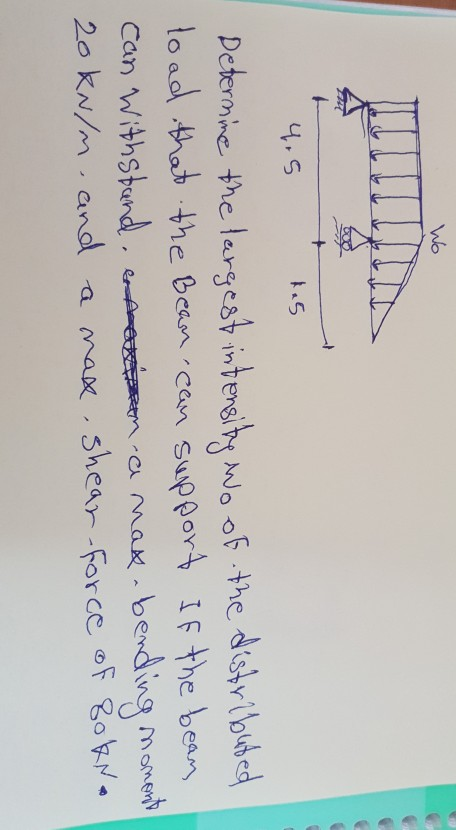 Wo
4.5 1.5
Determine the largest intensity Wo of the distributed
load that the Beam can support IF the beam
can withstand a max. bending moment
20 kN/m and a max. shear-force of 80 kN.